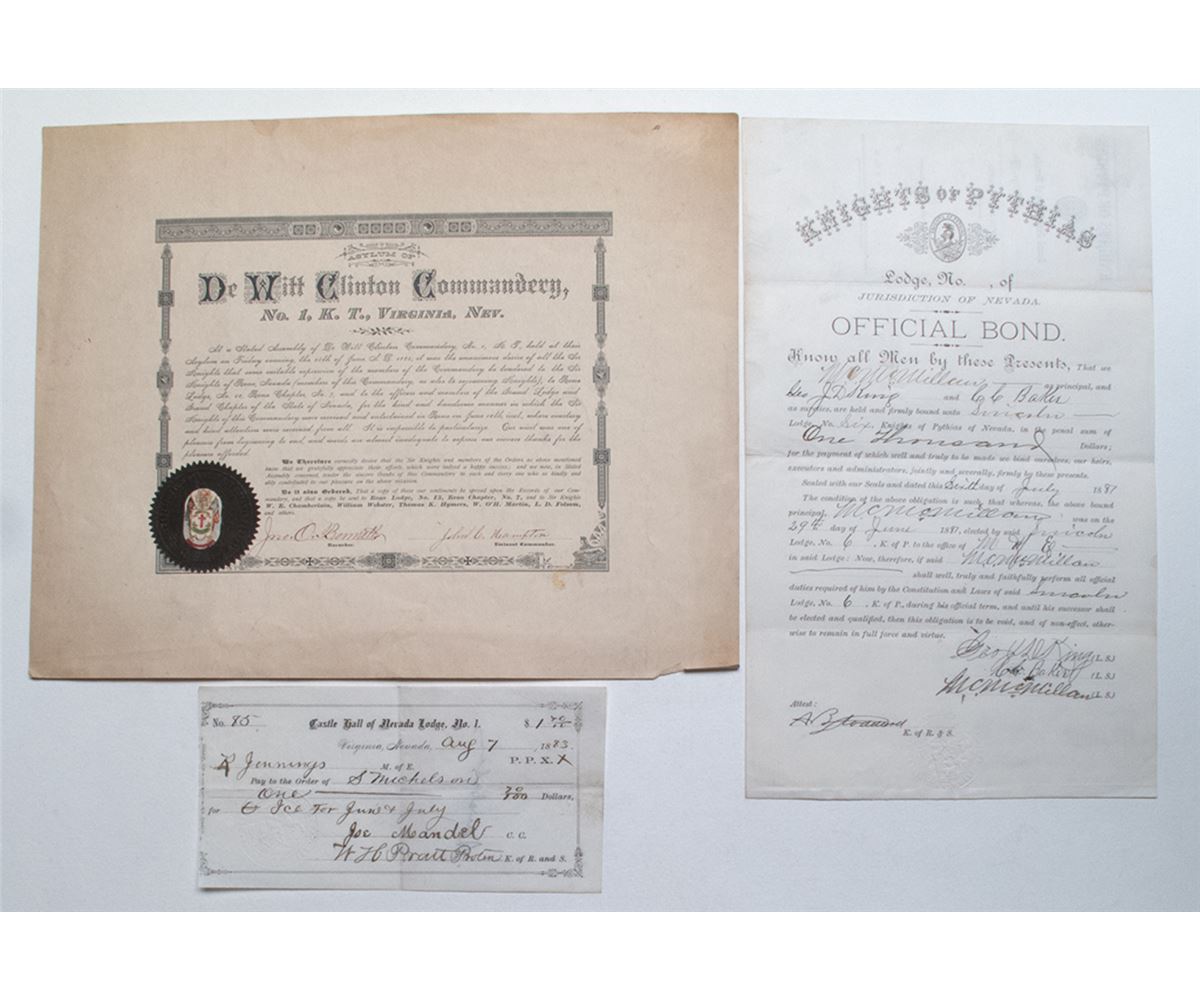 ASYLUM OF
De Witt Clinton Commandery,
No. 1, K. T., Virginia, Nev.
At a Stated Assembly of De Witt Clinton Commandery, No. 1, K. T., held at their
Asylum on Friday evening, the of June A. D. it was the unanimous desire of all the Sir
Knights that some suitable expression of the members of the Commandery be tendered to the Sir
Knights of Reno, Nevada (members of this Commandery, as also to sojourning Knights), to Reno
Lodge, No. 13, Reno Chapter, No. 7, and to the officers and members of the Grand Lodge and
Grand Chapter of the State of Nevada, for the kind and handsome manner in which the Sir
Knights of this Commandery were received and entertained in Reno on June inst., where courtesy
and kind attention were received from all. It is impossible to particularize. Our visit was one of
pleasure from beginning to end, and words are almost inadequate to express our sincere thanks for the
pleasure afforded.
We Therefore earnestly desire that the Sir Knights and members of the Orders as above mentioned
know that we gratefully appreciate their efforts, which were indeed a happy success; and we now, in Stated
Assembly convened tender the sincere thanks of this Commandery to each and every one who so kindly and
ably contributed to our pleasure on the above occasion.
Be it also Ordered, That a copy of these our sentiments be spread upon the Records of our Com-
mandery, and that a copy be sent to Reno Lodge, No. 13, Reno Chapter, No. 7, and to Sir Knights
W. E. Chamberlain, William Webster, Thomas K. Hymers, W. O'H. Martin, L. D. Folsom,
and others.
Jno. C. Hampton
Recorder. Eminent Commander.
KNIGHTS OF PYTHIAS
Lodge, No. , of
JURISDICTION OF NEVADA.
OFFICIAL BOND.
Know all Men by these Presents, That we
M C McMillan as principal, and
Geo J. D King and C C Baker
as sureties, are held and firmly bound unto Lincoln
Lodge, No. Six, Knights of Pythias of Nevada, in the penal sum of
One Thousand Dollars;
for the payment of which well and truly to be made we bind ourselves, our heirs,
executors and administrators, jointly and severally, firmly by these presents.
Sealed with our Seals and dated this Sixth day of July 1881
The condition of the above obligation is such, that whereas, the above bound
principal, M C McMillan, was on the
29th day of June 1881, elected by said Lincoln
Lodge, No. 6, K. of P. to the office of M of E
in said Lodge: Now, therefore, if said M C McMillan
shall well, truly and faithfully perform all official
duties required of him by the Constitution and Laws of said Lincoln
Lodge, No. 6, K. of P., during his official term, and until his successor shall
be elected and qualified, then this obligation is to be void, and of non-effect, other-
wise to remain in full force and virtue.
Geo J D King (L. S.)
C C Baker (L. S.)
M C McMillan (L. S.)
Attest:
A B Stoddard
K. of R. & S.
No. 85 Castle Hall of Nevada Lodge, No. 1. $ 1 70/100
Virginia, Nevada, Aug 7 1883
Jennings M. of E. P. P. X. X
Pay to the Order of S Michelson
One 70/100 Dollars,
for Ice for June & July
Joe Mandel C. C.
W H Pratt Protem K. of R. and S.